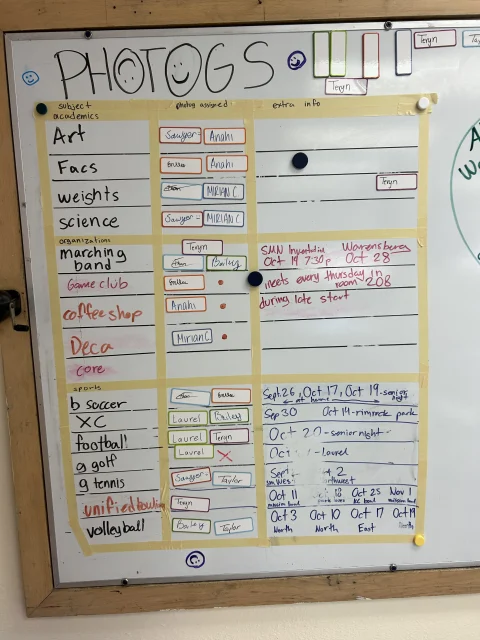 PHOTOGS
Teryn
Teryn
subject
photog assigned
extra info
academics
Art
Sawyer
Anahi
Facs
Anahi
weights
MIRIAN C
Teryn
science
Sawyer
MIRIAN C
organizations
marching band
Teryn
Bailey
SMN Invitational Warrensburg
Oct 19 7:30p Oct 28
Game club
meets every thursday in room 208
coffee shop
Anahi
during late start
Deca
Mirian C
core
sports
b soccer
Sept. 26, Oct 17, Oct 19 -senior night
XC
Laurel
Bailey
Sep 30 Oct 14 - rimrock park
football
Laurel
Teryn
-senior night-
g golf
Laurel
X
-Laurel
g tennis
Sawyer
Taylor
Sept
unified bowling
Teryn
Oct 11 Oct 25 Nov 1
volleyball
Bailey
Taylor
Oct 3 Oct 10 Oct 17 Oct 19
North North East North